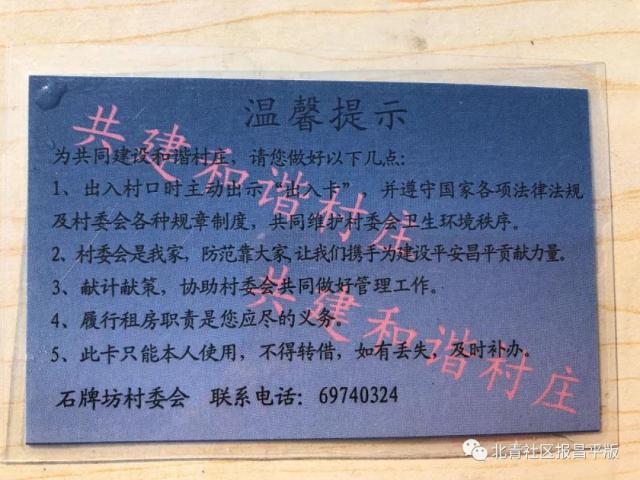 温馨提示
共建和谐村庄
为共同建设和谐村庄，请您做好以下几点：
1、出入村口时主动出示“出入卡”，并遵守国家各项法律法规
及村委会各种规章制度，共同维护村委会卫生环境秩序。
2、村委会是我家，防范靠大家,让我们携手为建设平安昌平贡献力量。
3、献计献策，协助村委会共同做好管理工作。
共建和谐村庄
4、履行租房职责是您应尽的义务。
5、此卡只能本人使用，不得转借，如有丢失，及时补办。
石牌坊村委会 联系电话：69740324
北青社区报昌平版